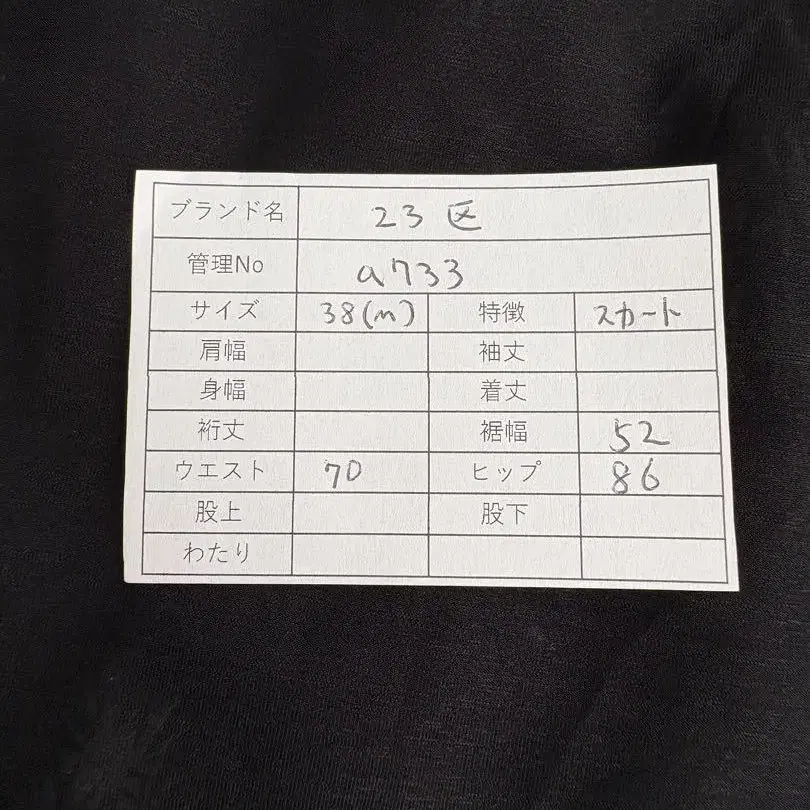 ブランド名 23区
管理No a733
サイズ 38(m) 特徴 スカート
肩幅 袖丈
身幅 着丈
裄丈 裾幅 52
ウエスト 70 ヒップ 86
股上 股下
わたり